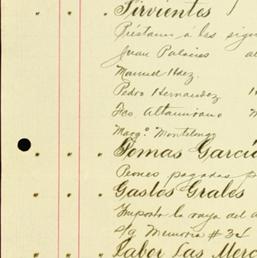 Sirvientes
Préstamo a los sigui
Juan Palacios al
Manuel Hdez.
Pedro Hernandez
Fco Altamirano M
Margo. Montelongo
Tomas García
Peones pagados p
Gastos Grales
Importa la raya del a
s/g Memoria # 34
Labor Las Merc